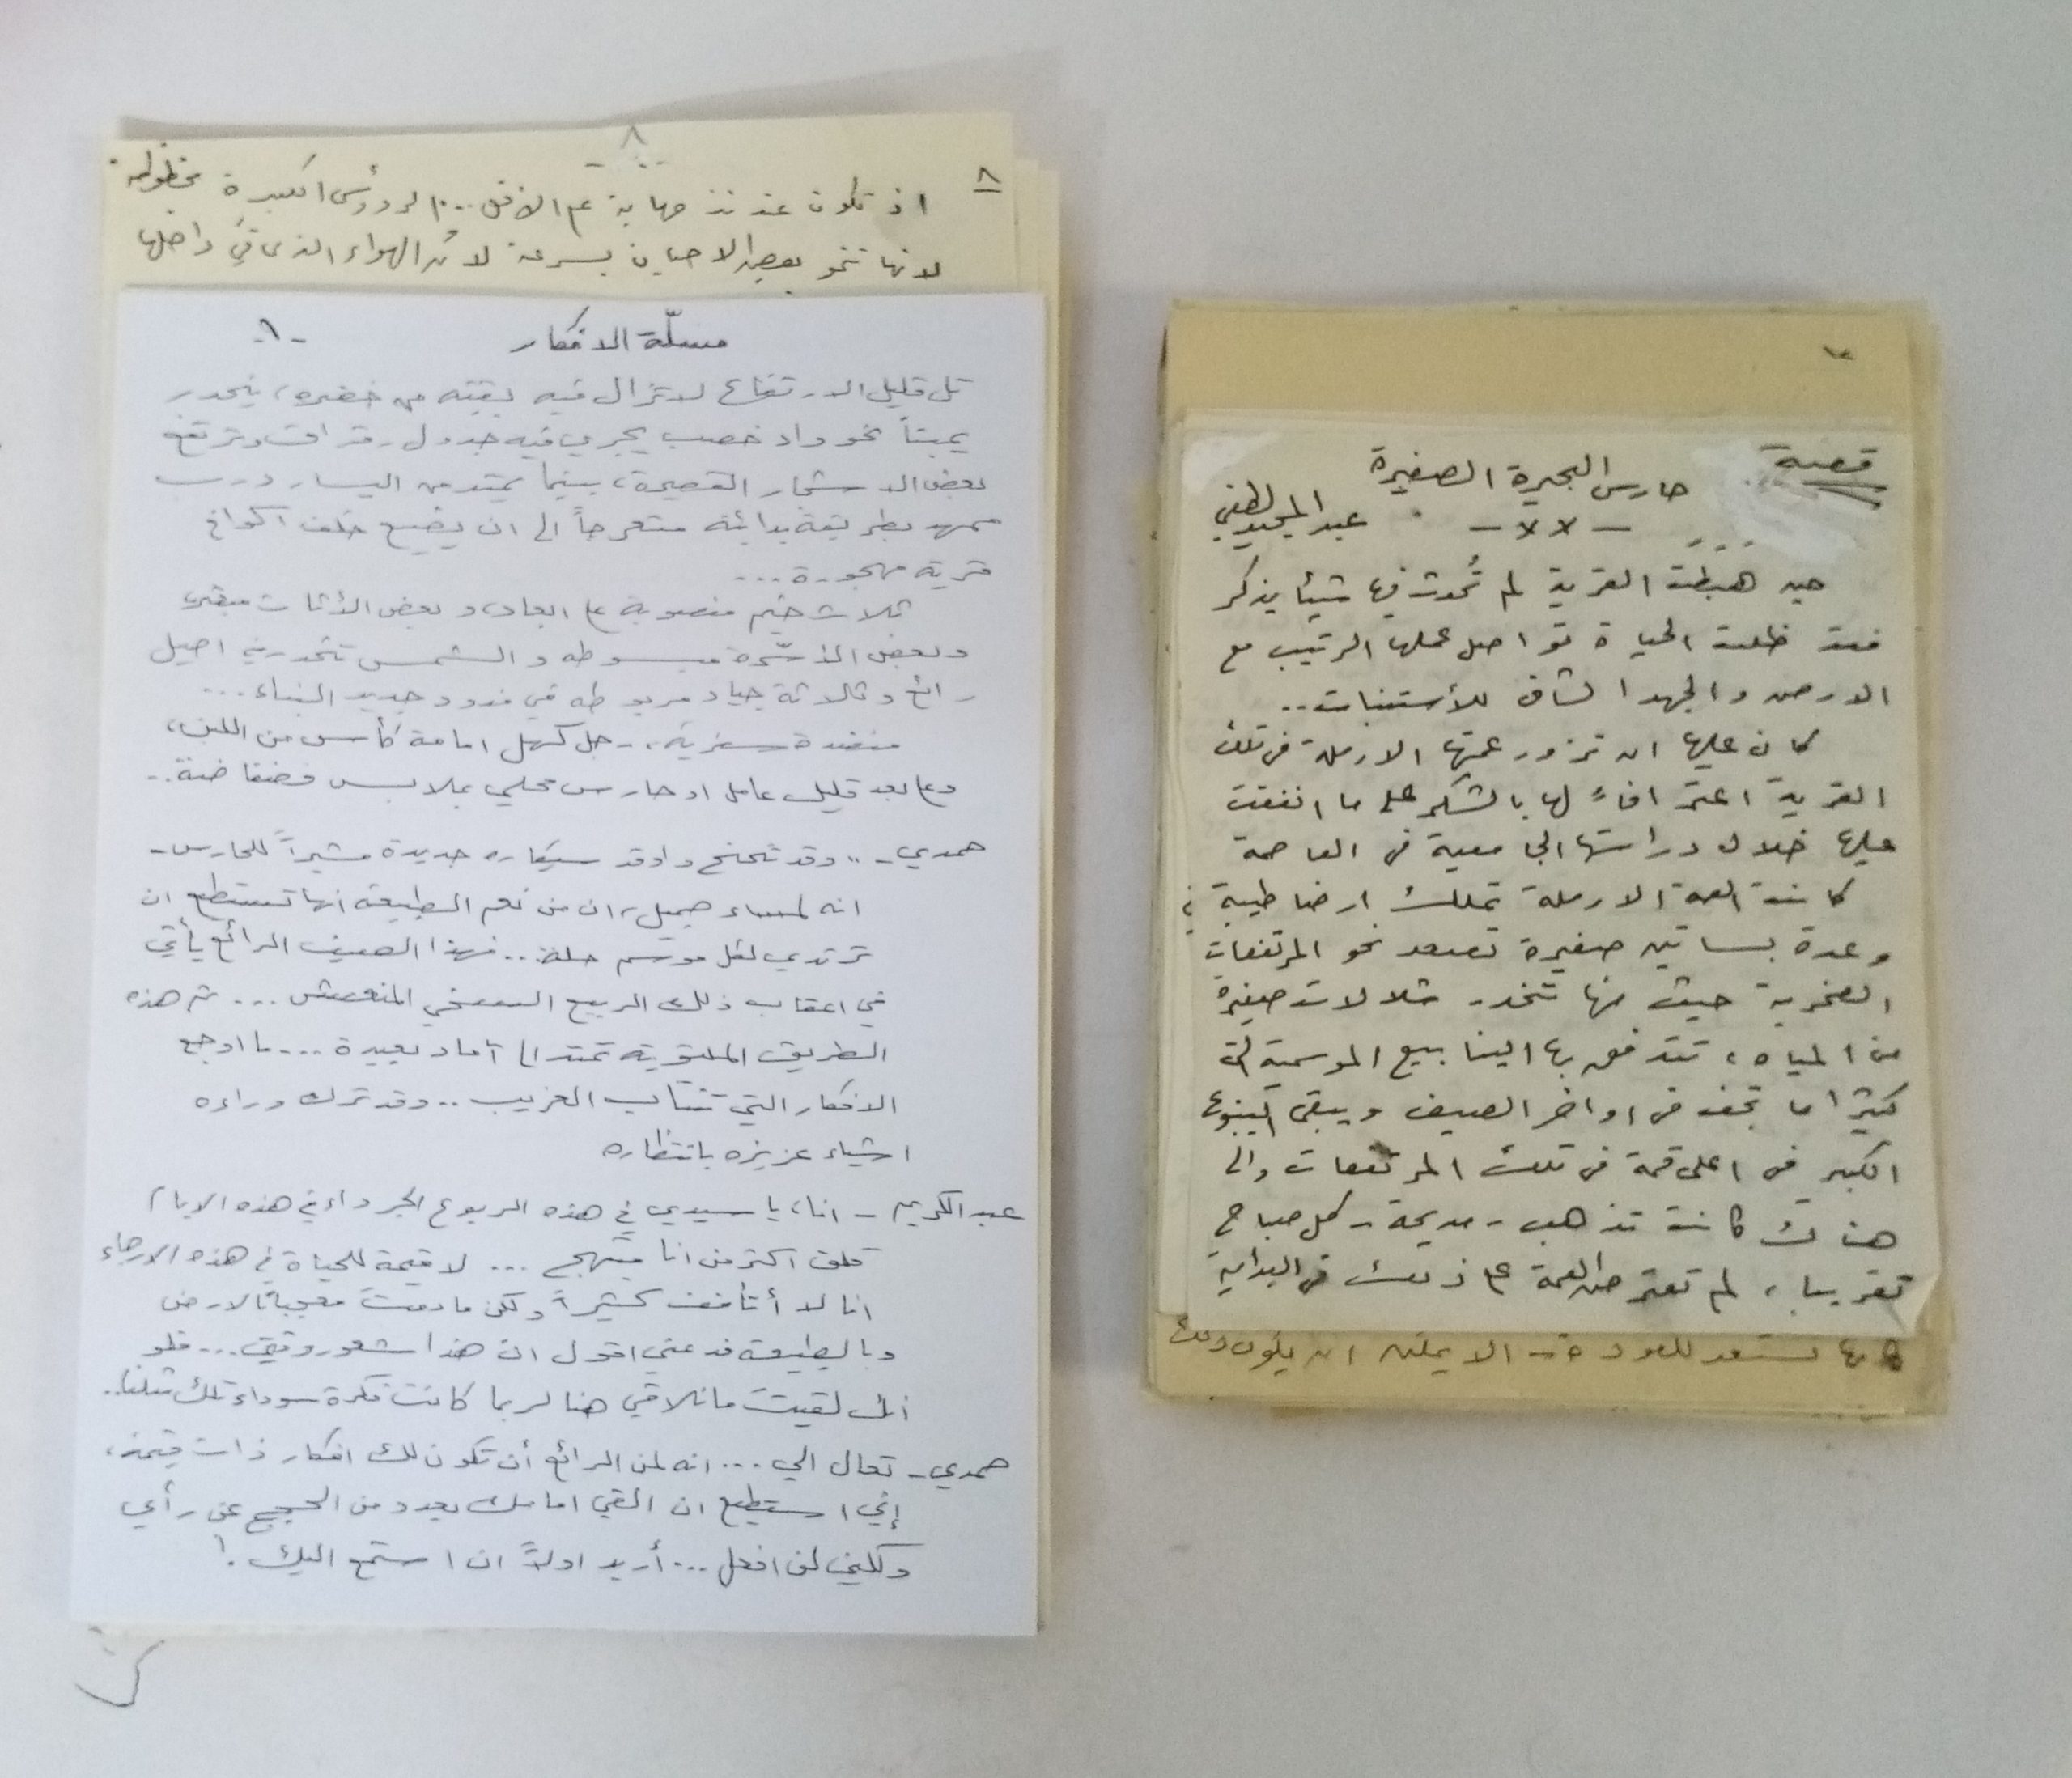 قصة
حارس البحيرة الصغيرة
عبد المجيد لطفي
حين هبطت القرية لم تُحدث فيها شيئا يذكر
فقد ظلت الحياة تواصل عملها الرتيب مع
الارض والجهد الشاق للأستنبات..
كان عليها ان تزور عمتها الارملة في تلك
القرية اعترافاً لها بالشكر على ما انفقت
عليها خلال دراستها الجامعية في العاصمة
كانت العمة الارملة تملك ارضا طيبة
وعدة بساتين صغيرة تصعد نحو المرتفعات
الصخرية حيث منها تنحدر شلالات صغيرة
من المياه، تتدفق بها الينابيع الموسمية التي
كثيرا ما تجف في اواخر الصيف ويبقى الينبوع
الكبير في اعلى قمة في تلك المرتفعات والى
هناك كانت تذهب - مديحة - كل صباح
تقريبا، لم تعترض العمة على ذلك في البداية
تستعد للعودة الا يمكن ان يكون
٨
٨
اذ تكون عندئذ على الافق... الرؤوس الكبيرة محظوظة
لانها تنمو بعض الاحيان بسرعة لأن الهواء الذي في داخلها
مسلّة الافكار -١-
تل قليل الارتفاع لا تزال فيه بقية من خضره، ينحدر
يميناً نحو واد خصب يجري فيه جدول رقراق وترتفع
بعض الاشجار القصيرة، بينما يمتد من اليسار درب
ممهد بطريقة بدائية متعرجاً الى ان يضيع خلف اكواخ
قرية مهجورة...
ثلاث خيم منصوبة على ابعاد، وبعض الأثاث مبعثر
وبعض الأسّرة مبسوطه والشمس تنحدر في اصيل
رائع وثلاثة جياد مربوطه في مذود جديد البناء...
منضدة سفرية، رجل كهل امامة كأس من اللبن،
وعلى بعد قليل عامل او حارس محلي بملابس فضفاضة..
حمدي - .. وقد تنحنح واوقد سيكاره جديدة مشيراً للحارس -
انه لمساء جميل، ان من نعم الطبيعة انها تستطيع ان
ترتدي لكل موسم حلة... فهذا الصيف الرائع يأتي
في اعقاب ذلك الربيع السخي المنعش... ثم هذه
الطريق الملتوية تمتد الى آماد بعيدة... ما اوجع
الافكار التي تنتاب الغريب.. وقد ترك وراءه
اشياء عزيزه بانتظاره
عبد الكريم - انا، يا سيدي في هذه الربوع الجرداء في هذه الايام
قلق اكثر من انا مبتهج ... لا قيمة للحياة في هذه الارجاء
انا لا أتأفف كثيراً ولكن ما دمتَ معجباً بالارض
وبالطبيعة فدعني اقول ان هذا شعور وقتي... فلو
انك لقيت ما نلاقي هنا لربما كانت فكرة سوداء تلك مثلنا..
حمدي - تعال الي... انه لمن الرائع أن تكون لك افكار ذات قيمة،
إني استطيع ان القي امامك بعدد من الحجج عن رأيي
ولكني لن افعل... أريد اولاً ان استمع اليك.!